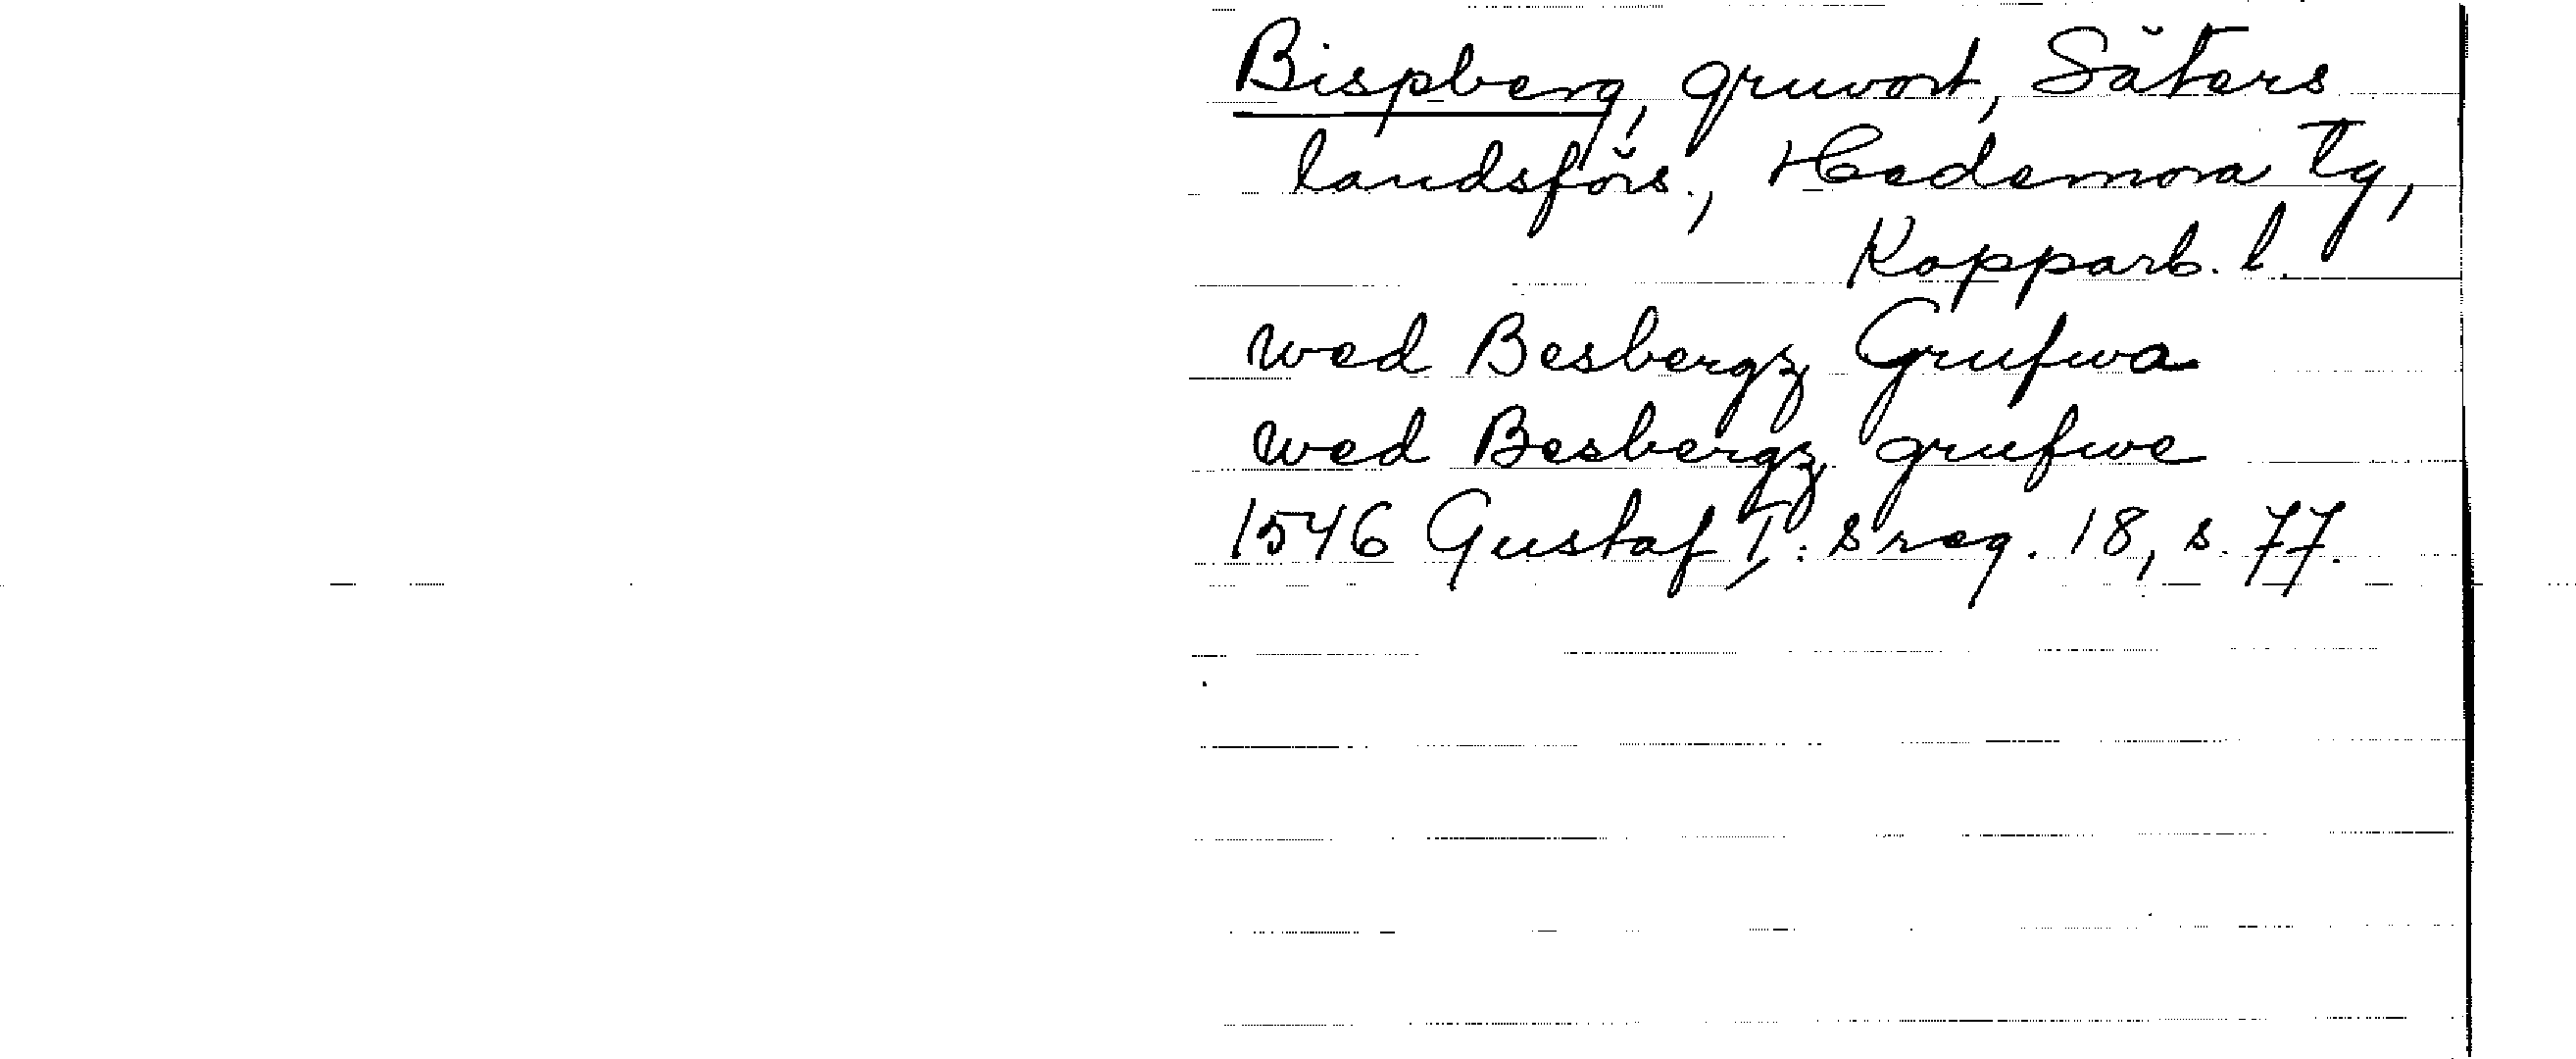 Bispberg, gruvort, Säters
landsförs., Hedemora tg,
Kopparb. l.
wed Besbergz Grufwa
wed Besbergz grufwe
1546 Gustaf I:s reg. 18, s. 77.